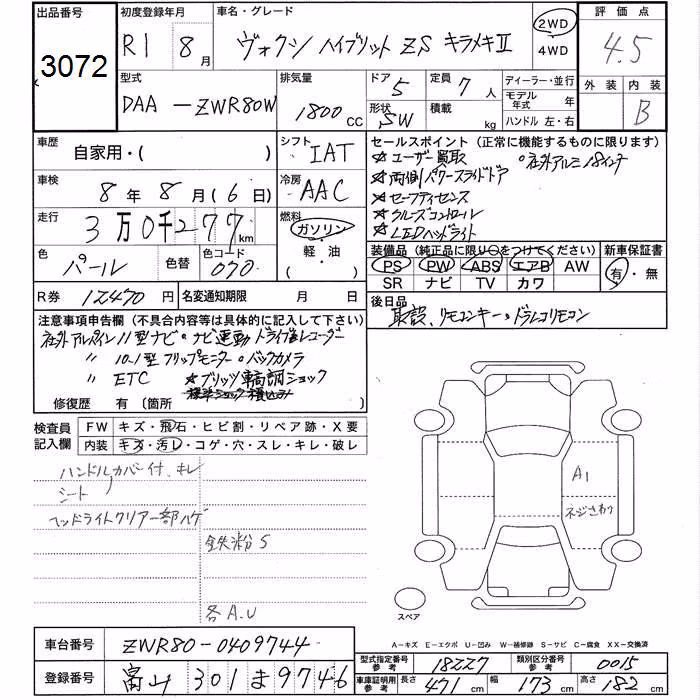 出品番号
3072
初度登録年月
R1 8月
車名・グレード
ヴォクシー ハイブリット ZS キラメキⅡ
2WD
4WD
評価点
4.5
型式
DAA-ZWR80W
排気量
1800 CC
ドア 5
形状 SW
定員 7人
積載 kg
ディーラー・並行
モデル年式 年
ハンドル 左・右
外装 内装
B
車歴
自家用・( )
シフト IAT
車検
8年 8月(6日)
冷房 AAC
走行
3万0千277km
燃料
ガソリン
軽・油
( )
色 パール
色替
色コード 070
R券 12470円
名変通知期限 月 日
セールスポイント(正常に機能するものに限ります)
★ユーザー買取 ○社外アルミ18インチ
★両側パワースライドドア
★セーフティセンス
★クルーズコントロール
★LEDヘッドライト
装備品(純正品に限り○をつけてください)
新車保証書
PS PW ABS エアB AW
SR ナビ TV カワ
有・無
後日品
取説、リモコンキー、ドラレコリモコン
注意事項申告欄(不具合内容等は具体的に記入して下さい)
社外アルパイン11型ナビ・ナビ連動ドライブレコーダー
〃 10.1型フリップモニター・バックカメラ
〃 ETC ★ブリッツ車高調ショック
標準ショック積込み
修復歴 有(箇所 )
検査員記入欄
FW キズ・飛石・ヒビ割・リペア跡・X要
内装 キズ・汚レ・コゲ・穴・スレ・キレ・破レ
ハンドルカバー付、キレ
シート
ヘッドライトクリアー部ハゲ
鉄粉S
各A.U
A1
ネジさわり
スペア
A-キズ E-エクボ U-凹み W-補修跡 S-サビ C-腐食 XX-交換済
車台番号 ZWR80-0409744
登録番号 富山 301 ま 9746
型式指定番号参考 18227
類別区分番号参考 0015
車庫証明用参考 長さ 471cm 幅 173cm 高さ 182cm